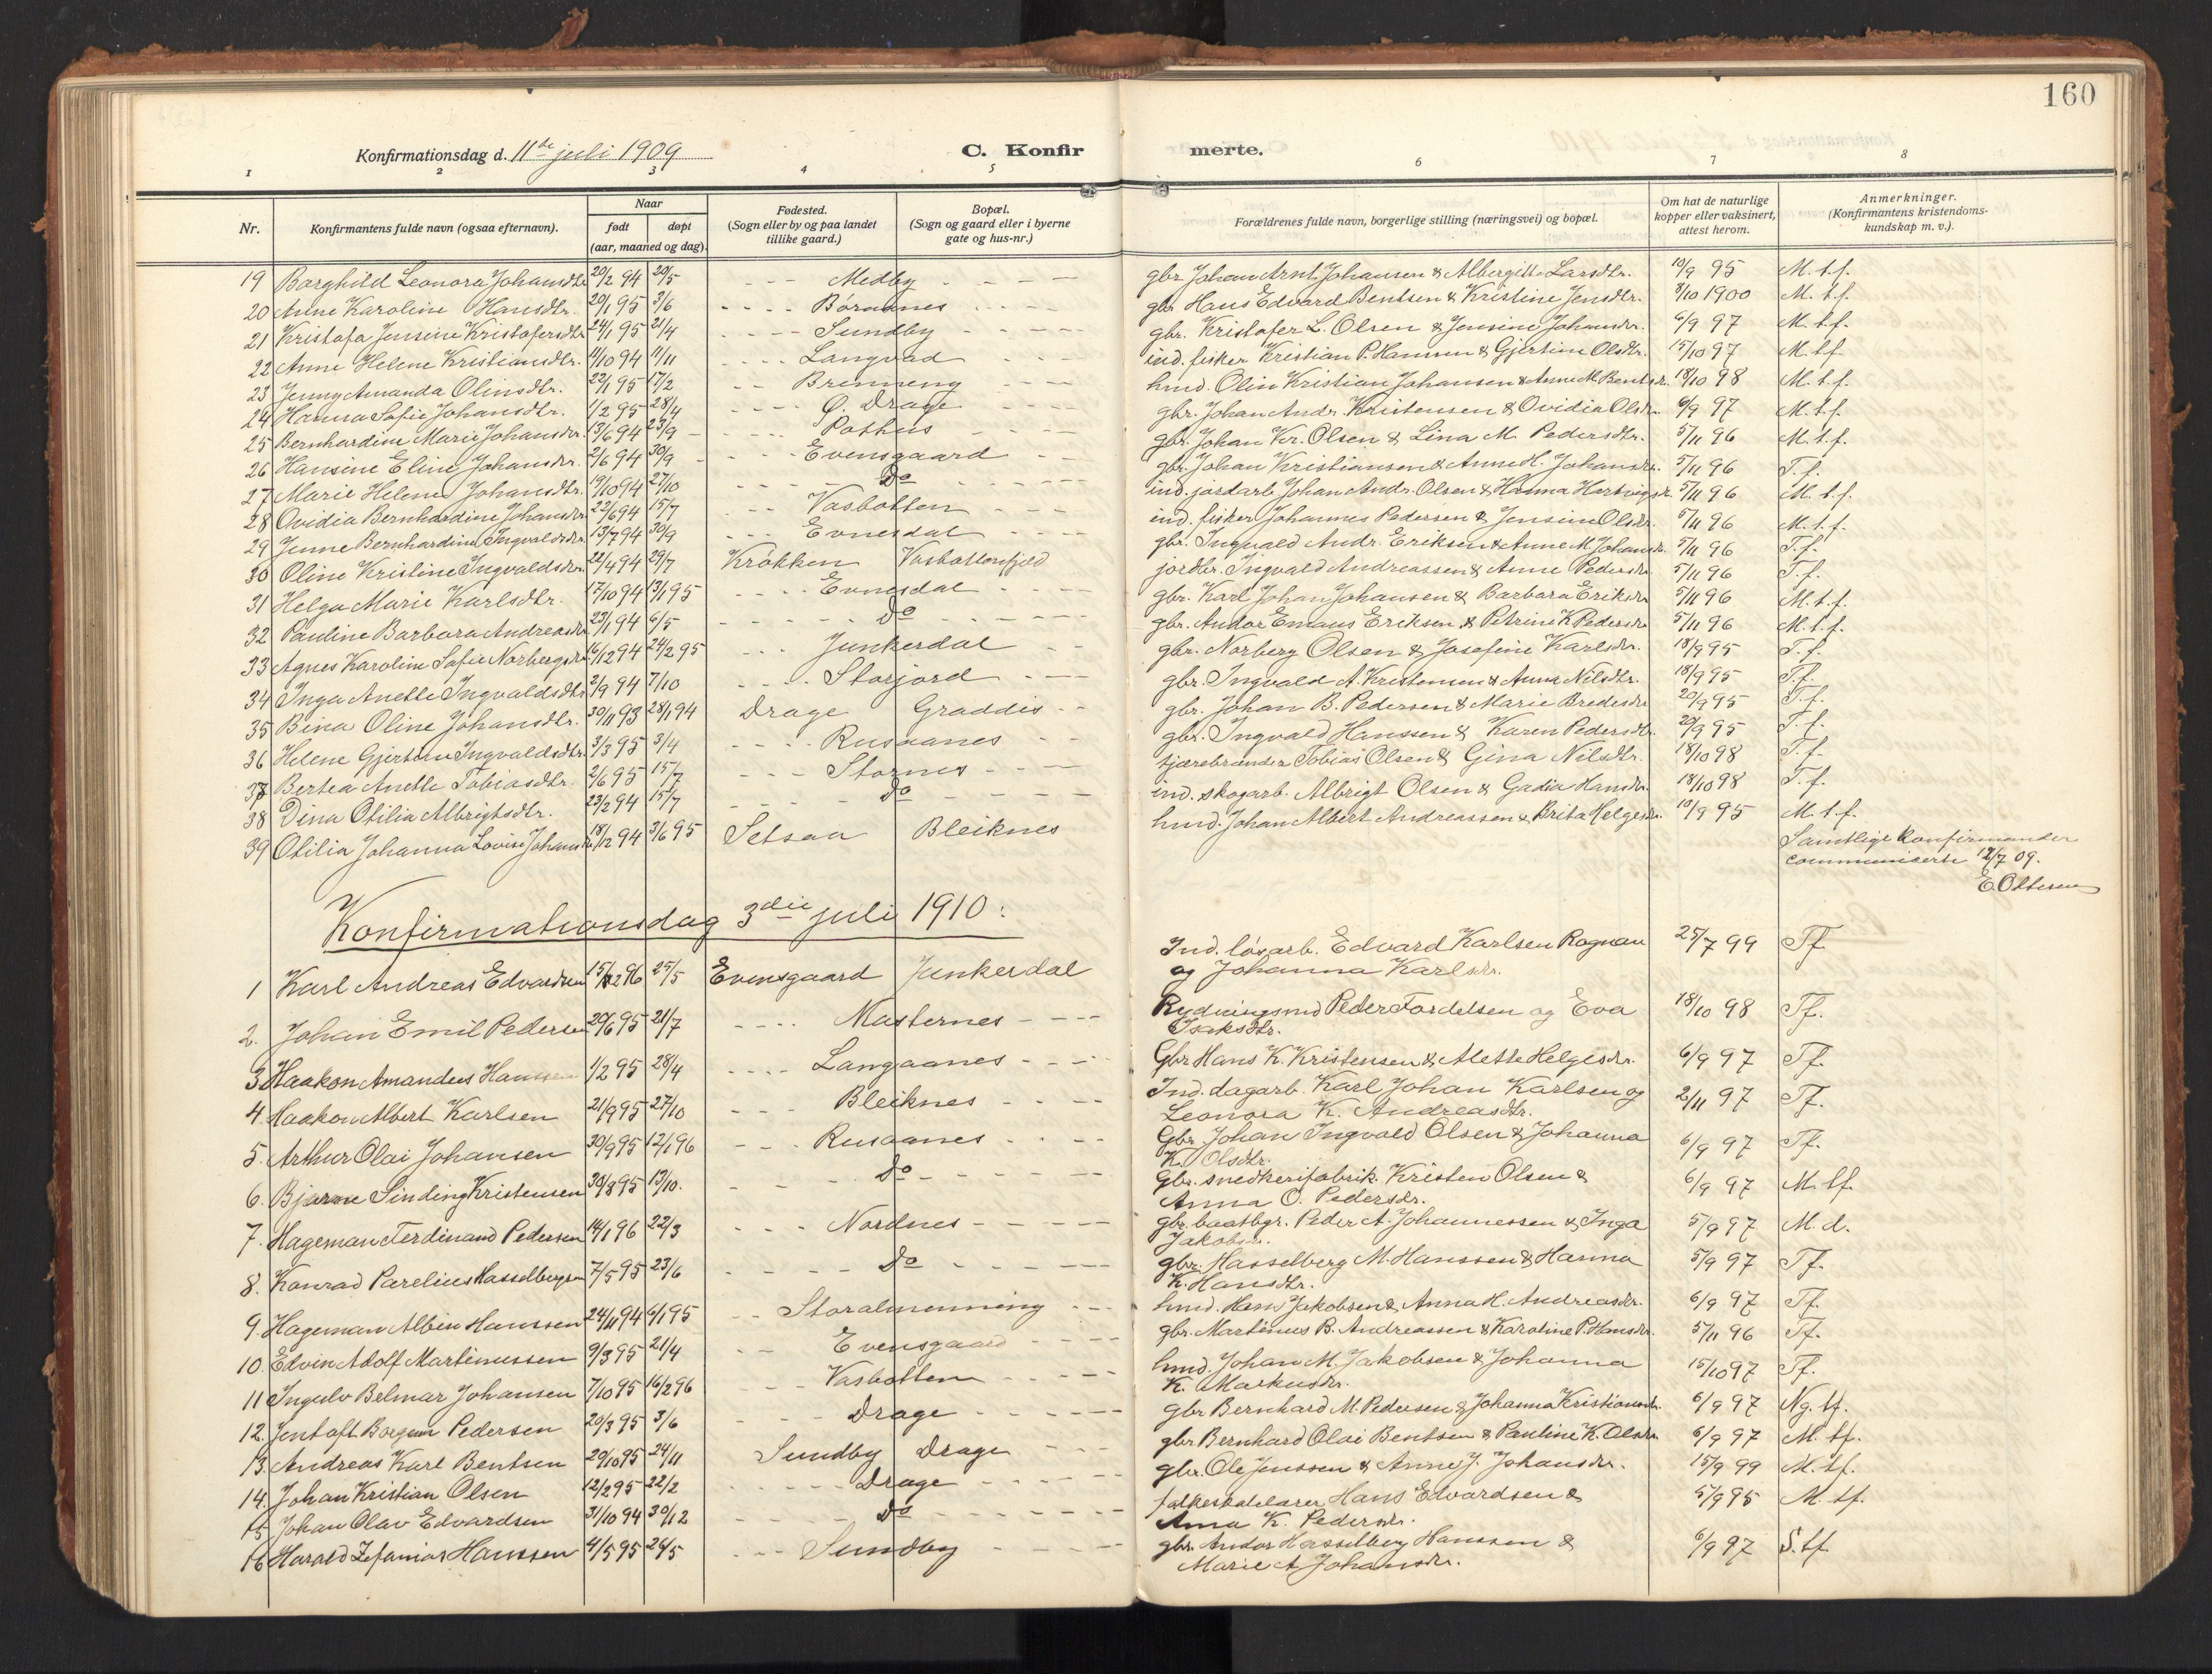 160
Konfirmationsdag d. 11te juli 1909
C. Konfirmerte.
1 2 3 4 5 6 7 8
Nr. Konfirmantens fulde navn (ogsaa efternavn). Naar født døpt (aar, maaned og dag). Fødested. (Sogn eller by og paa landet tillike gaard.) Bopæl. (Sogn og gaard eller i byerne gate og hus-nr.) Forældrenes fulde navn, borgerlige stilling (næringsvei) og bopæl. Om hat de naturlige kopper eller vaksinert, attest herom. Anmerkninger. (Konfirmantens kristendoms-kundskap m. v.).
19 Borghild Leonora Johansdtr. 20/2 94 20/5 Medby gbr. Johan Arnt Johansen & Albergitte Larsdtr. 10/9 95 M.t.f.
20 Anne Karoline Hansdtr. 20/1 95 3/6 gbr. Hans Edvard Bentsen & Kristine Jensdtr. 8/10 1900 M.t.f.
21 Kristofa Jensine Kristofersdtr 24/1 95 21/4 Sundby gbr. Kristofer L. Olsen & Jensine Johansdr. 6/9 97 M.t.f.
22 Anne Helene Kristiansdtr. 11/10 94 11/11 Langvad ind. fisker Kristian P. Hansen & Gjertine Olsdtr. 15/10 97 M.t.f.
23 Jenny Amanda Olinsdtr. 22/1 95 17/2 Brenneng hmd. Olin Kristian Johansen & Anne M. Bentsdr. 18/10 98 M.t.f.
24 Hanna Sofie Johansdtr. 1/2 95 28/4 Ø. Drage gbr. Johan Andr. Kristensen & Ovidia Olsdr. 6/9 97 M.t.f.
25 Bernhardine Marie Johansdr. 13/6 94 23/9 Pothus gbr. Johan Kr. Olsen & Lina M. Pedersdtr. 5/11 96 M.t.f.
26 Hansine Eline Johansdr. 2/6 94 30/9 Evensgaard gbr. Johan Kristiansen & Anne H. Johansdr. 5/11 96 T.f.
27 Marie Helene Johansdtr. 19/10 94 27/10 Do ind. jordarb. Johan Andr. Olsen & Hanna Hartvigsdr. 5/11 96 M.t.f.
28 Ovidia Bernhardine Johansdr. 22/6 94 15/7 Vasbotten ind. fisker Johannes Pedersen & Jensine Olsdr. 5/11 96 M.t.f.
29 Jenne Bernhardine Ingvaldsdr. 13/7 94 30/9 Evnesdal gbr. Ingvald Andr. Eriksen & Anne M. Johansdr. 5/11 96 T.f.
30 Oline Kristine Ingvaldsdr. 22/4 94 29/7 Krokken Vasbottenfjeld jordbr. Ingvald Andreassen & Anne Pedersdr. 5/11 96 T.f.
31 Helga Marie Karlsdtr. 17/10 94 13/1 95 Evnesdal gbr. Karl Johan Johansen & Barbara Eriksdr. 5/11 96 M.t.f.
32 Pauline Barbara Andreasdr. 23/1 94 6/5 Do gbr. Andor Emaus Eriksen & Petrine K. Pedersdr. 5/11 96 M.t.f.
33 Agnes Karoline Sofie Norbergsdr. 16/12 94 24/2 95 Junkerdal gbr. Norberg Olsen & Josefine Karlsdr. 18/9 95 T.f.
34 Inga Anette Ingvaldsdtr. 2/9 94 7/10 Storjord gbr. Ingvald A. Kristensen & Anna Nilsdtr. 18/9 95 T.f.
35 Bina Oline Johansdtr. 30/11 93 28/1 94 Drage Graddis gbr. Johan B. Pedersen & Marie Bredesdr. 20/9 95 T.f.
36 Helene Gjertine Ingvaldsdtr. 3/3 95 3/4 Rusaanes gbr. Ingvald Hanssen & Karen Pedersdtr. 20/9 95 T.f.
37 Bertea Anette Tobiasdtr. 2/6 95 15/7 Stornes tjærebrænder Tobias Olsen & Gina Nilsdtr. 18/10 98 T.f.
38 Dina Otilia Albrigtsdtr. 23/2 94 15/7 Do ind. skogarb. Albrigt Olsen & Gadia Hansdr. 18/10 98 T.f.
39 Otilia Johanna Lovise Johansdr. 18/12 94 3/6 95 Setsaa Bleiknes hmd. Johan Albert Andreassen & Brita Helgesdr. 10/9 95 M.t.f.
Samtlige konfirmander
communiserte 12/7 09.
E. Ottesen
Konfirmationsdag 3die juli 1910:
1 Karl Andreas Edvardsen 25/5 Evensgaard Junkerdal Ind. løsarb. Edvard Karlsen Rognan 25/7 99 Tf.
og Johanna Karlsdr.
2. Johan Emil Pedersen 29/6 95 21/7 Masternes Rydningsmd Peder Fordelsen og Eva 18/10 98 Tf.
Isaksdtr.
3 Haakon Amandus Hanssen 1/2 95 28/4 Langaanes Gbr Hans K. Kristensen & Alette Helgesdr. 6/9 97 Tf.
4 Haakon Albert Karlsen 21/9 95 27/10 Bleiknes Ind. dagarb. Karl Johan Karlsen og 2/11 97 Tf.
Leonora K. Andreasdtr.
5. Arthur Olai Johansen 30/9 95 12/1 96 Rusaanes Gbr. Johan Ingvald Olsen & Johanna 6/9 97 Tf.
K. Olsdtr.
6. Bjarne Sinding Kristensen 30/8 95 13/10. Do gbr. snedkerifabrik. Kristen Olsen & 6/9 97 M.tf.
Anna O. Pedersdr.
7. Hageman Ferdinand Pedersen 14/1 96 22/3 Nordnes gbr. baatbgr. Peder A. Johannessen & Inga 5/9 97 M.d.
Jakobsr.
8. Konrad Parelius Hasselbergsen 7/5 95 23/6 Do gbr. Hasselberg M. Hanssen & Hanna 5/9 97 Tf.
K. Hansdtr.
9. Hageman Albin Hanssen 24/11 94 6/1 95 Storalmenning hmd. Hans Jakobsen & Anna H. Andreasdr. 6/9 97 Tf.
10. Edvin Adolf Martinussen 9/3 95 21/4 Evensgaard gbr. Martinus B. Andreassen & Karoline P. Hansdr. 5/11 96 Tf.
11 Ingulv Belmar Johansen 7/10 95 16/2 96 Vasbotten hmd. Johan M. Jakobsen & Johanna 15/10 97 Tf.
K. Markusdr.
12. Jentoft Borgen Pedersen 20/3 95 3/6 Drage gbr Bernhard M. Pedersen & Johanna Kristiansdr. 6/9 97 Ng. tf.
13. Andreas Karl Bentsen 29/10 95 24/11 Sundby Drage gbr Bernhard Olai Bentsen & Pauline K. Olsdr. 6/9 97 M. tf.
14. Johan Kristian Olsen 12/2 95 22/2 Drage gbr. Ole Jenssen & Anne J. Johansdr. 15/9 99 M. tf.
15 Johan Olav Edvardsen 31/10 94 30/12 Do Hans Edvardsen & 5/9 95 M. tf.
Anna K. Pedersdr.
16 Harald Zefanias Hanssen 4/5 95 26/5 Sundby gbr. Andor Hasselberg Hanssen & 6/9 97 S. tf.
Marie A. Johansdr.